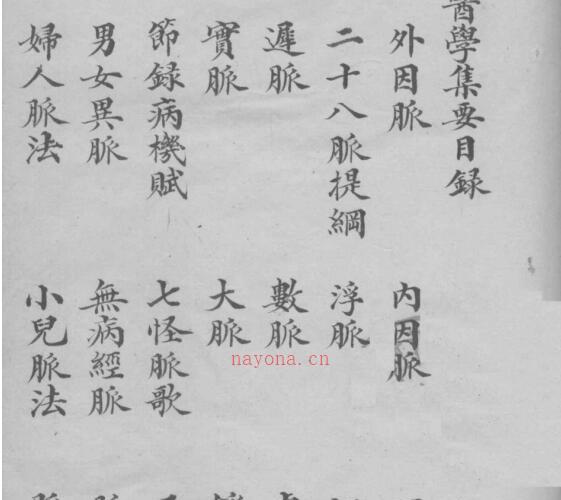 醫學集要目録
外因脈
内因脈
二十八脈提綱
浮脈
遲脈
數脈
實脈
大脈
節録病機賦
七怪脈歌
男女異脈
無病經脈
婦人脈法
小兒脈法
nayona.cn